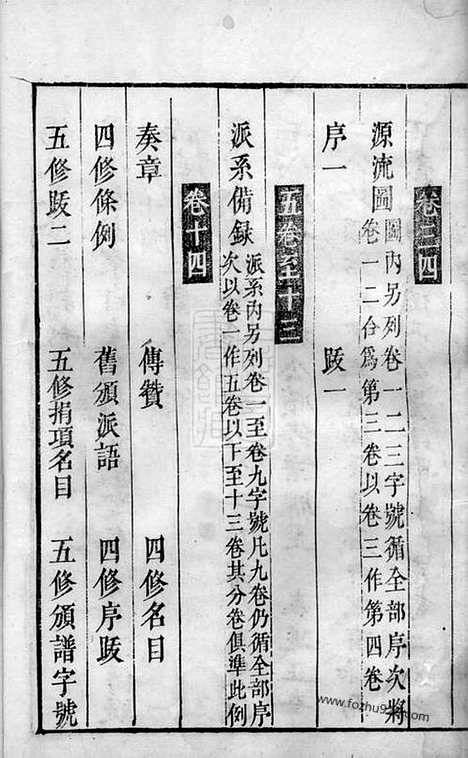 卷三四
源流圖 圖內另列卷一二三字號循全部序次將
卷一二合爲第三卷以卷三作第四卷
序一 跋一
五卷至十三
派系備録 派系內另列卷一至卷九字號凡九卷仍循全部序
次以卷一作五卷以下至十三卷其分卷俱準此例
卷十四
奏章 傳贊 四修名目
四修條例 舊頒派語 四修序跋
五修跋二 五修捐項名目 五修頒譜字號
www.fozhu9